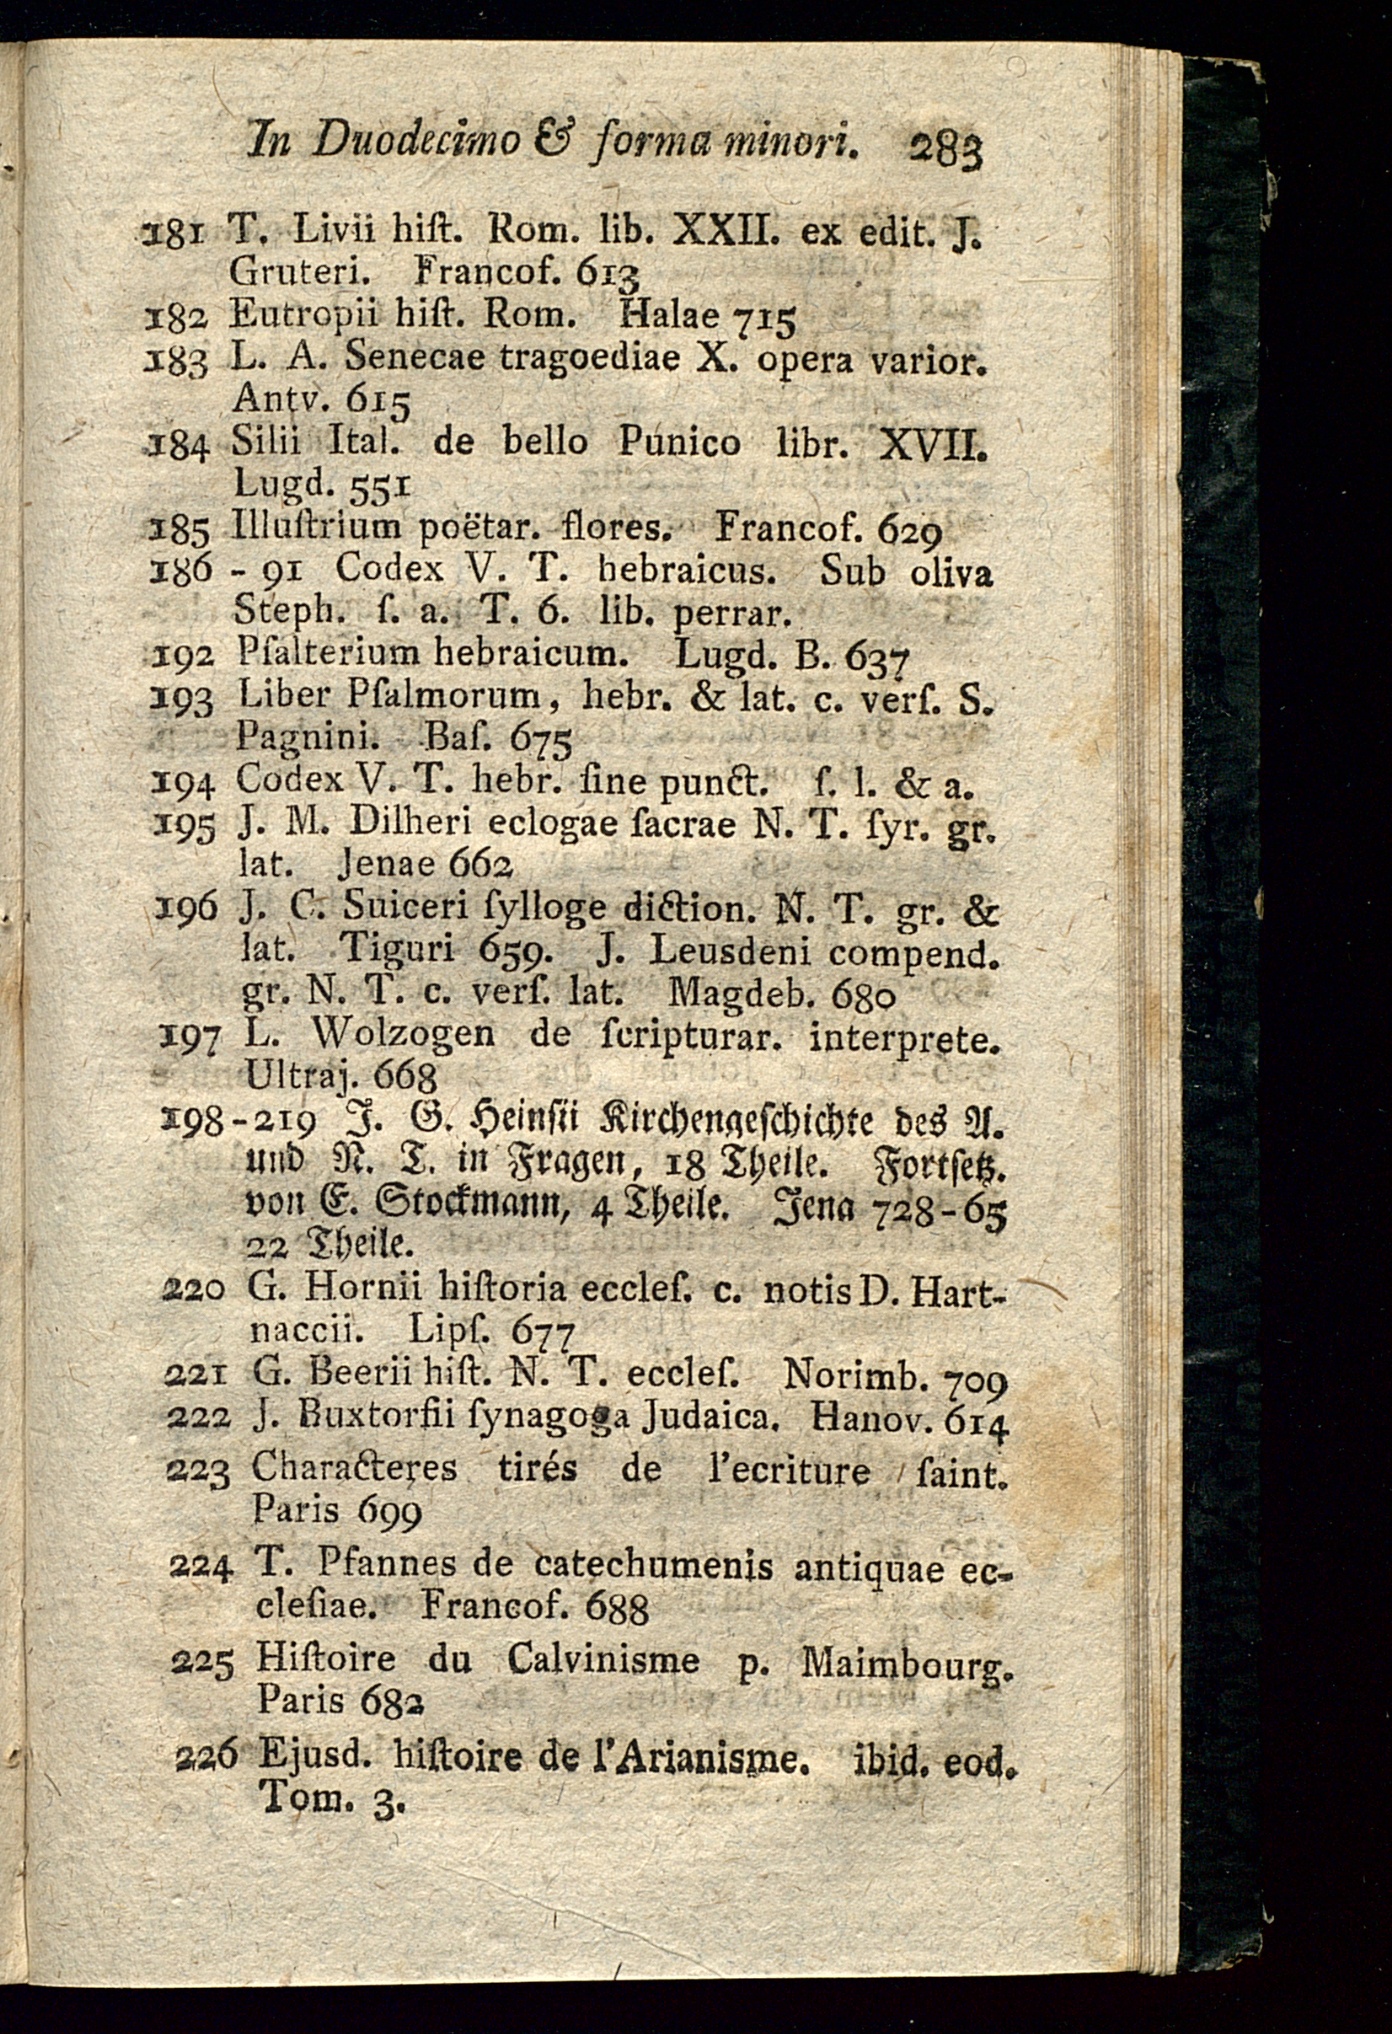 In Duodecimo & forma minori. 283
181 T. Livii hiſt. Rom. lib. XXII. ex edit. J.
Gruteri. Francof. 613
182 Eutropii hiſt. Rom. Halae 715
183 L. A. Senecae tragoediae X. opera varior.
Antv. 615
184 Silii Ital. de bello Punico libr. XVII.
Lugd. 551
185 Illuſtrium poëtar. flores. Francof. 629
186 - 91 Codex V. T. hebraicus. Sub oliva
Steph. ſ. a. T. 6. lib. perrar.
192 Pſalterium hebraicum. Lugd. B. 637
193 Liber Pſalmorum, hebr. & lat. c. verſ. S.
Pagnini. Baſ. 675
194 Codex V. T. hebr. ſine punct. ſ. l. & a.
195 J. M. Dilheri eclogae ſacrae N. T. ſyr. gr.
lat. Jenae 662
196 J. C. Suiceri ſylloge diction. N. T. gr. &
lat. Tiguri 659. J. Leusdeni compend.
gr. N. T. c. verſ. lat. Magdeb. 680
197 L. Wolzogen de ſcripturar. interprete.
Ultraj. 668
198-219 J. G. Heinſii Kirchengeſchichte des A.
und N. T. in Fragen, 18 Theile. Fortſetz.
von E. Stockmann, 4 Theile. Jena 728-65
22 Theile.
220 G. Hornii hiſtoria eccleſ. c. notis D. Hart-
naccii. Lipſ. 677
221 G. Beerii hiſt. N. T. eccleſ. Norimb. 709
222 J. Buxtorfii ſynagoga Judaica. Hanov. 614
223 Characteres tirés de l'ecriture ſaint.
Paris 699
224 T. Pfannes de catechumenis antiquae ec-
cleſiae. Francof. 688
225 Hiſtoire du Calvinisme p. Maimbourg.
Paris 682
226 Ejusd. hiſtoire de l'Arianisme. ibid. eod.
Tom. 3.